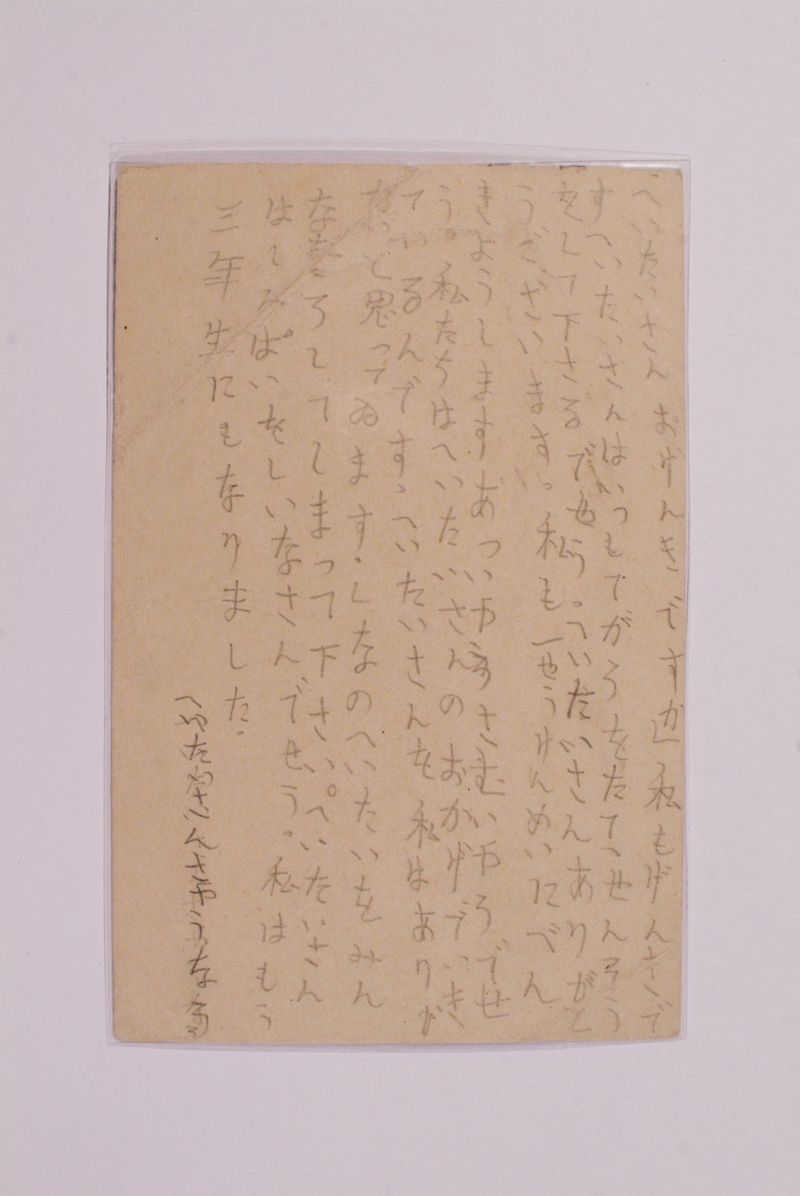 へいたいさん おげんきですか 私もげんきで
すへいたいさんはいつもてがらをたて、せんそう
をして下さるでせう。へいたいさんありがと
うございます。私も一せうけんめいにべん
きようしますあつい
さむいやうでせ
う。私たちはへいたいさんのおかげでいき
ているんです、へいたいさんを私はありが
たいと思ってゐます。しなのへいたいをみん
なころしてしまって下さい。へいたいさん
はしんぱいをしいなさんでせう。私はもう
三年生にもなりました。
へいたいさんさやうなら